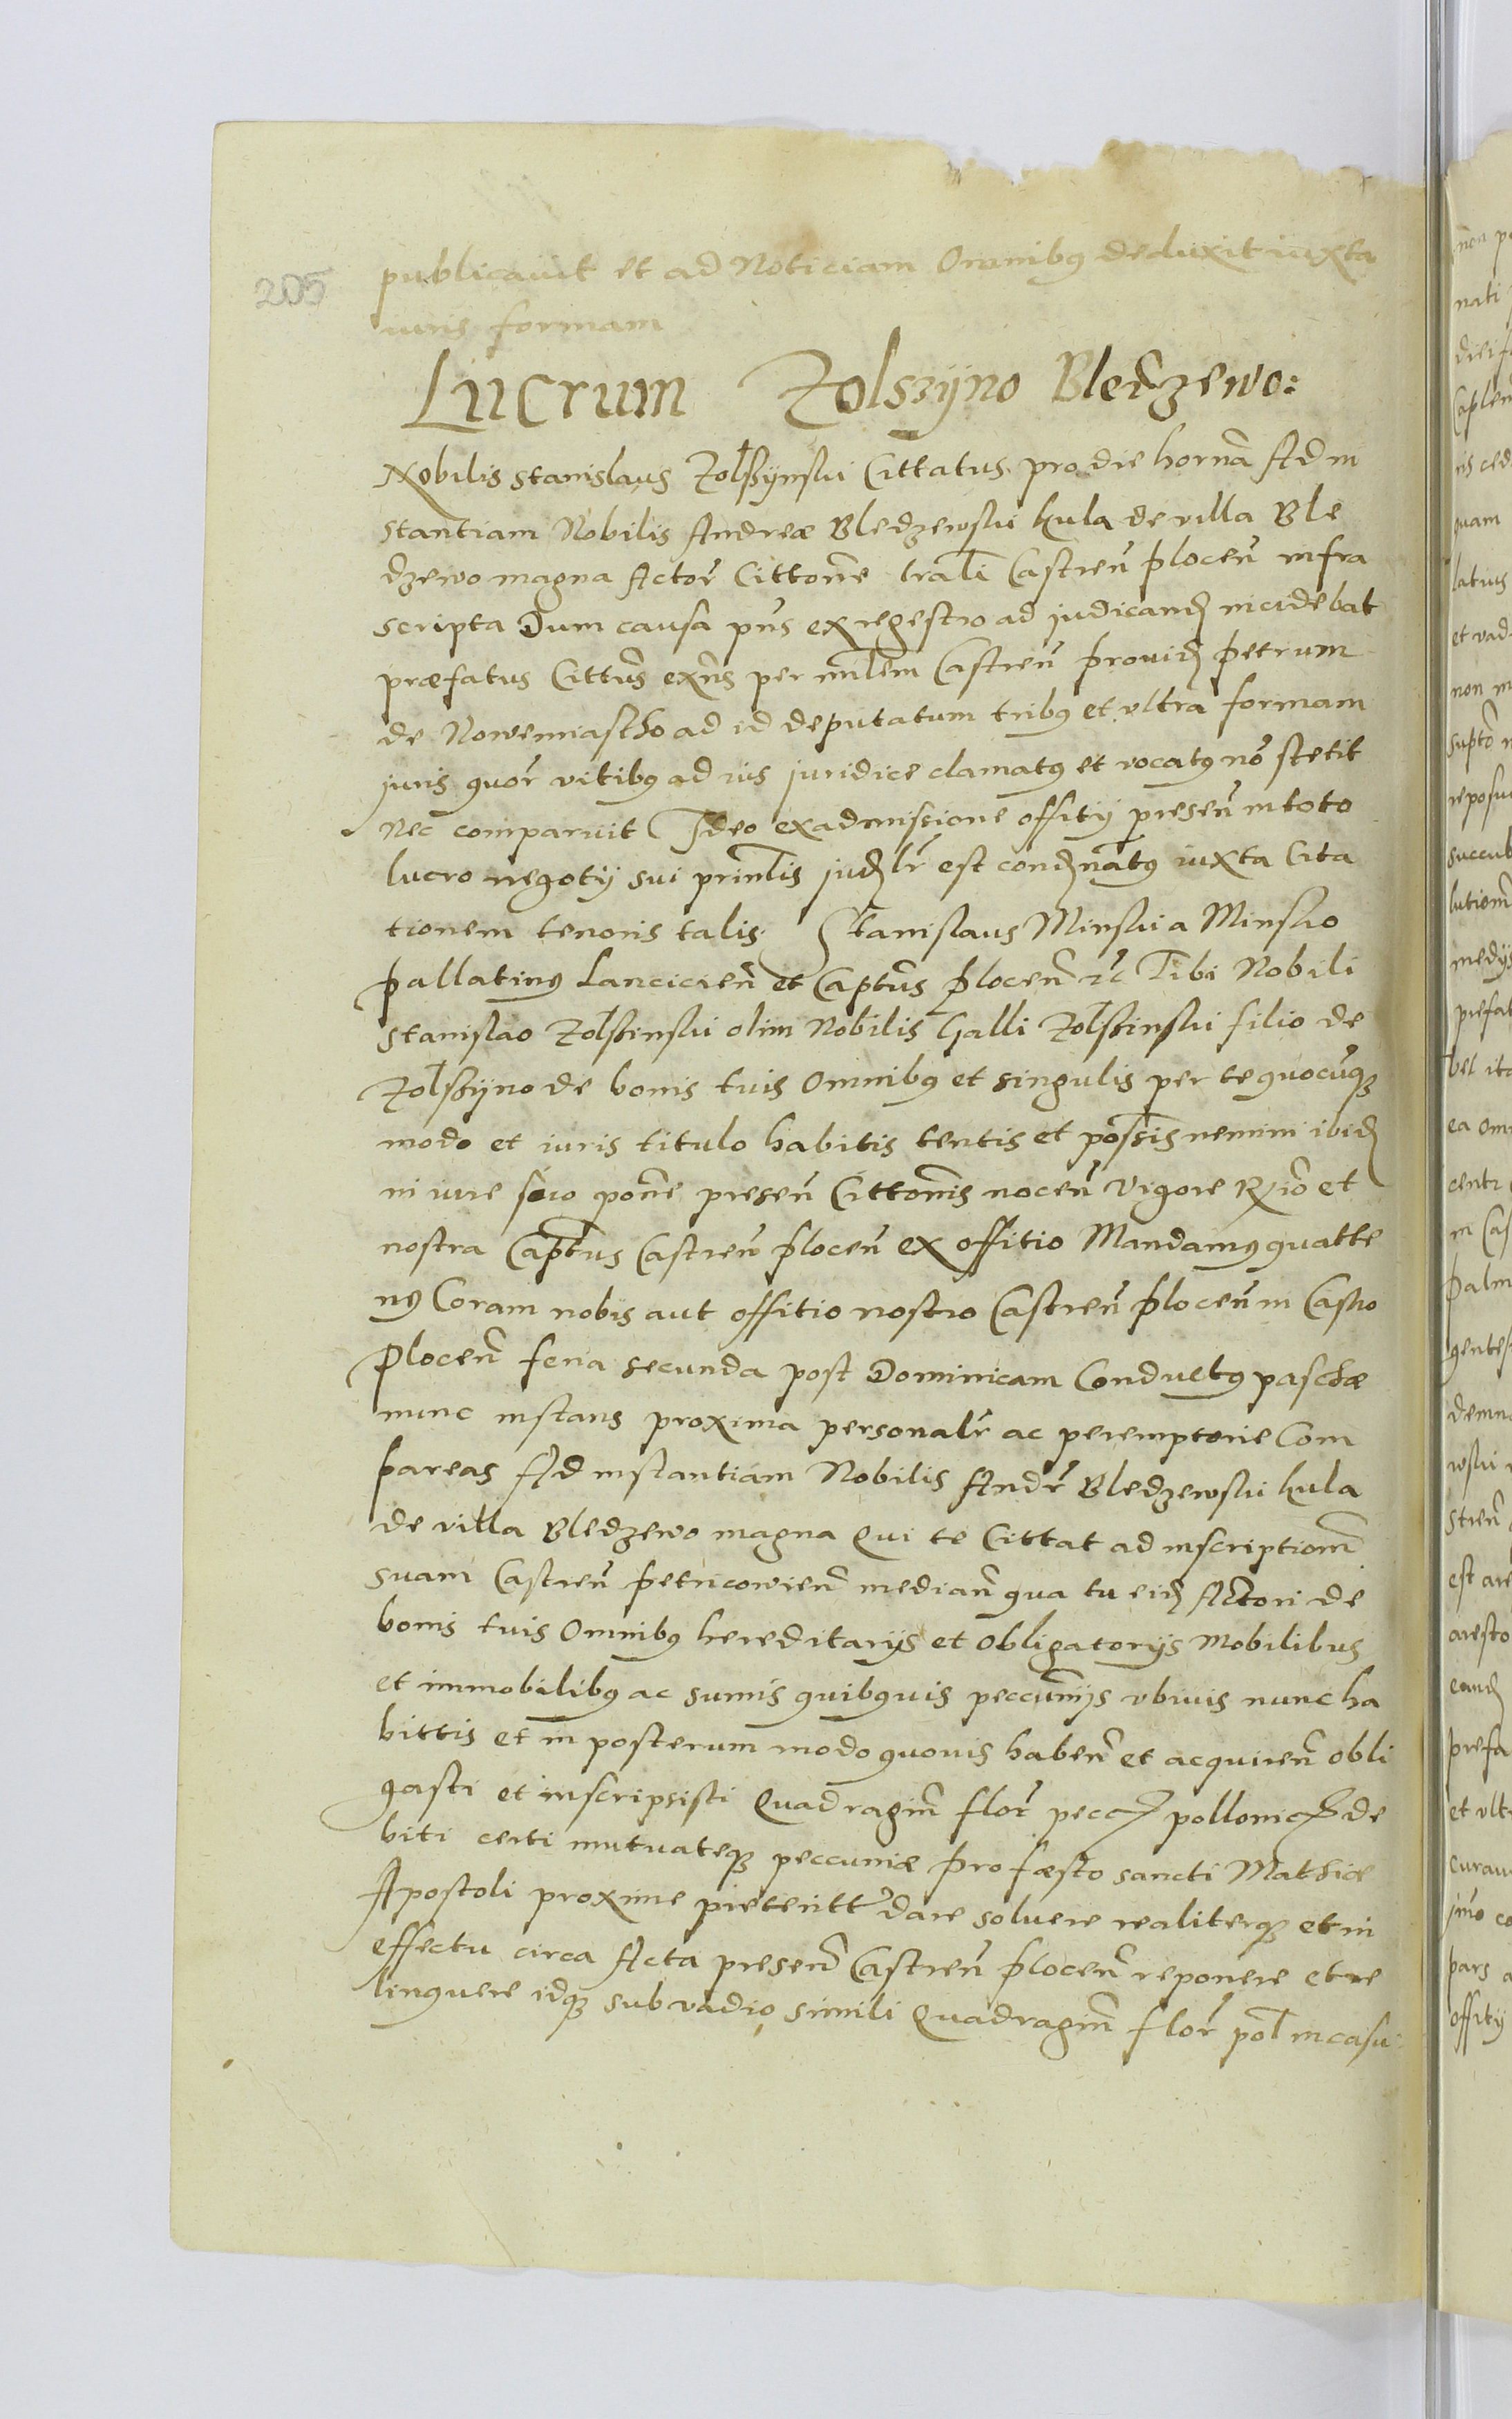 205
publicauit et ad Noticiam Omnibus deduxit iuxta
iuris formam
Lucrum Zolszyno Bledzewo:
Nobilis Stanislaus Zolszynski Cittatus pro die hornã Ad in
stantiam Nobilis Andreæ Bledzewski Kula de villa Ble
dzewo magna Actor̃ Cittone tralĩ Castreñ ploceñ infra
scripta Dum causa pñs ex regestro ad judicand incidebat
præfatus Cittus exñs per mĩlem Castreñ prouid petrum
de Nowemiastho ad id deputatum tribus et vltra formam
juris quor̃ vitibus ad ius juridice clamatus et vocatus nõ stetit
nec comparuit Ideo ex admissione offitij preseñ in toto
lucro negotij sui prinlis judlr̃ est condnatus iuxta Cita
tionem tenoris talis Stanislaus Minski a Minsko
pallatinus Lancicieñ et Captus ploceñ etc Tibi Nobili
Stanislao Zolszinski olim Nobilis Galli Zolszinski filio de
Zolszyno de bonis tuis Omnibus et singulis per te quocũqȝ
modo et iuris titulo habitis tentis et possis nemini ibid
in iure suo pone preseñ Cittonis noceñ Vigore R et
nostra Captus Castreñ ploceñ ex offitio Mandamus quatte
nus Coram nobis aut offitio nostro Castreñ ploceñ in Castro
Ploceñ feria secunda post Dominicam Conductus paschæ
nunc instans proxima personalr̃ ac peremptorie Com
pareas Ad instantiam Nobilis Andr̃ Bledzewski Kula
de villa Bledzewo magna Qui te Cittat ad inscriptionẽ
suam Castreñ petricowieñ mediañ qua tu eid Actori de
bonis tuis Omnibus hereditarijs et Obligatorijs Mobilibus
et immobilibus ac sumis quibusuis peccunijs vbiuis nunc ha
bittis et in posterum modo quouis habeñ et acquireñ obli
gasti et inscripsisti Quadragiñ flor̃ pecc pollonic de
biti certi mutuateqȝ peccuniæ pro fæsto sancti Mathiæ
Apostoli proxime pretentt dare soluere realiterqȝ et in
effectu circa Acta preseñ Castreñ ploceñ reponere et re
linquere idqȝ sub vadio simili Quadragiñ flor̃ pol in casu